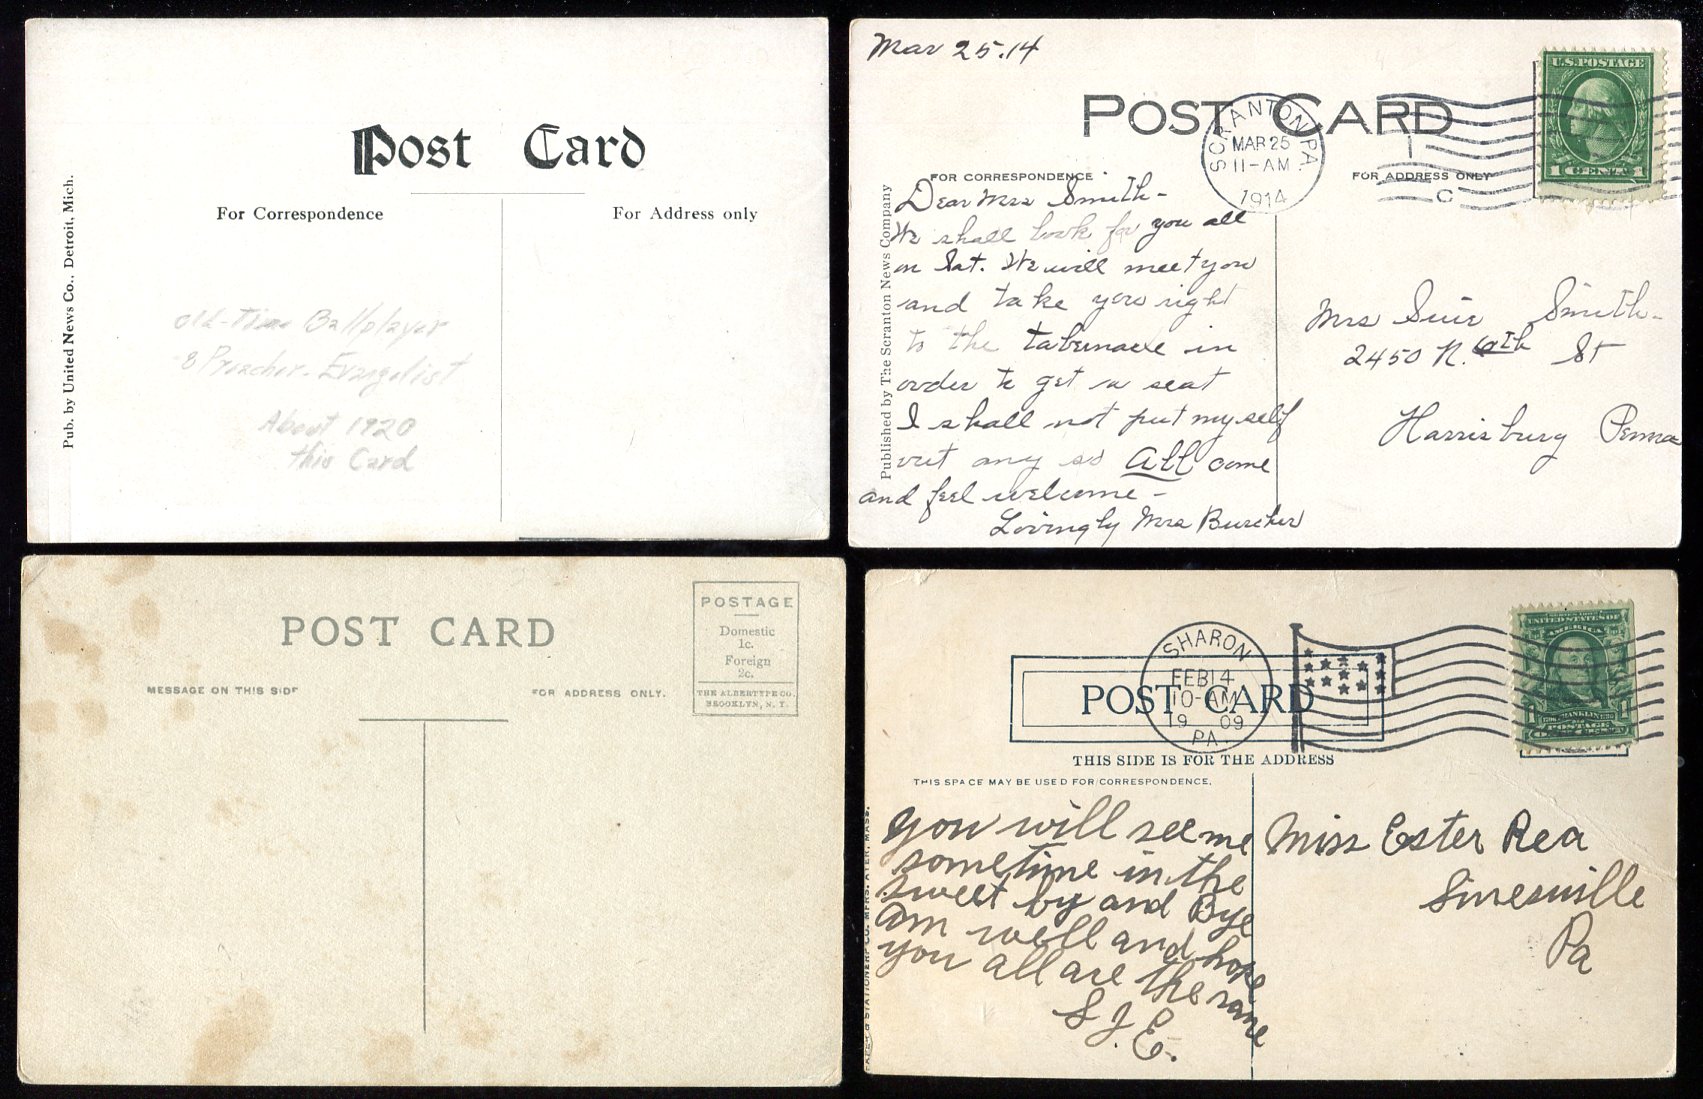 Post Card
For Correspondence
For Address only
Pub. by United News Co., Detroit, Mich.
Old-Time Ballplayer
& Preacher-Evangelist
About 1920
this Card
Mar 25.14
POST CARD
U.S. POSTAGE
1 CENT 1
SCRANTON, PA.
MAR 25
11-AM
1914
C
FOR CORRESPONDENCE
FOR ADDRESS ONLY
Published by The Scranton News Company
Dear Mrs Smith-
We shall look for you all
on Sat. We will meet you
and take you right
to the tabernacle in
order to get a seat
I shall not put myself
out any so All come
and feel welcome-
Lovingly Mrs
Mrs Smith-
2450 N. 6th St
Harrisburg Penna
POST CARD
MESSAGE ON THIS SIDE
FOR ADDRESS ONLY.
POSTAGE
Domestic
1c.
Foreign
2c.
THE ALBERTYPE CO.
BROOKLYN, N. Y.
SHARON
FEB 14
10-AM
1909
PA.
UNITED STATES OF
AMERICA
POSTAGE
POST CARD
THIS SIDE IS FOR THE ADDRESS
THIS SPACE MAY BE USED FOR CORRESPONDENCE.
& STATIONERY CO. MFRS. AYER, MASS.
you will see me
sometime in the
sweet by and Bye
am well and hope
you all are the same
S. J. E.
Miss Ester Rea
Pa